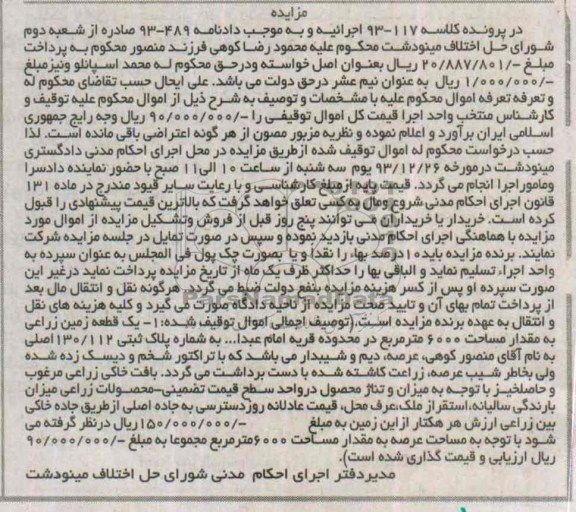 مزایده
در پرونده کلاسه ۱۱۷-۹۳ اجرائیه و به موجب دادنامه ۴۸۹-۹۳ صادره از شعبه دوم
شورای حل اختلاف مینودشت محکوم علیه محمود رضا کوهی فرزند منصور محکوم به پرداخت
مبلغ -/۲۰/۸۸۷/۸۰۱ ریال بعنوان اصل خواسته ودرحق محکوم له محمد اسپانلو ونیزمبلغ
-/۱/۰۰۰/۰۰۰ ریال به عنوان نیم عشر درحق دولت می باشد. علی ایحال حسب تقاضای محکوم له
و تعرفه تعرفه اموال محکوم علیه با مشخصات و توصیف به شرح ذیل از اموال محکوم علیه توقیف و
کارشناس منتخب واحد اجرا قیمت کل اموال توقیفی را -/۹۰/۰۰۰/۰۰۰ ریال وجه رایج جمهوری
اسلامی ایران برآورد و اعلام نموده و نظریه مزبور مصون از هر گونه اعتراضی باقی مانده است. لذا
حسب درخواست محکوم له اموال توقیف شده ازطریق مزایده در محل اجرای احکام مدنی دادگستری
مینودشت درمورخه ۹۳/۱۲/۲۶ یوم سه شنبه از ساعت ۱۰ الی۱۱ صبح با حضور نماینده دادسرا
وماموراجرا انجام می گردد. قیمت پایه ازمبلغ کارشناسی و با رعایت سایر قیود مندرج در ماده ۱۳۱
قانون اجرای احکام مدنی شروع ومال به کسی تعلق خواهد گرفت که بالاترین قیمت پیشنهادی را قبول
کرده است. خریدار یا خریداران می توانند پنج روز قبل از فروش وتشکیل مزایده از اموال مورد
مزایده با هماهنگی اجرای احکام مدنی بازدید نموده و سپس در صورت تمایل در جلسه مزایده شرکت
نمایند. برنده مزایده باید ۱۰درصد بهاء را نقدا و یا بصورت چک پول فی المجلس به عنوان سپرده به
واحد اجراء تسلیم نماید و الباقی بها را حداکثر ظرف یک ماه از تاریخ مزایده پرداخت نماید درغیر این
صورت سپرده او پس از کسر هزینه مزایده بنفع دولت ضبط می گردد. هرگونه نقل و انتقال مال بعد
از پرداخت تمام بهای آن و تایید صحت مزایده از ناحیه دادگاه صورت می گیرد و کلیه هزینه های نقل
و انتقال به عهده برنده مزایده است.(توصیف اجمالی اموال توقیف شده:۱- یک قطعه زمین زراعی
به مقدار مساحت ۶۰۰۰ مترمربع در محدوده قریه امام عبدا... به شماره پلاک ثبتی ۱۳۰/۱۱۲اصلی
به نام آقای منصور کوهی، عرصه، دیم و شیبدار می باشد که با تراکتور شخم و دیسک زده شده
ولی بخاطر شیب عرصه، زراعت کاشته شده با دست برداشت می گردد. بافت خاکی زراعی مرغوب
و حاصلخیز با توجه به میزان و تناژ محصول درواحد سطح قیمت تضمینی-محصولات زراعی میزان
بارندگی سالیانه،استقراز ملک،عرف محل، قیمت عادلانه روزدسترسی به جاده اصلی ازطریق جاده خاکی
بین زراعی ارزش هر هکتار از این زمین به مبلغ -/۱۵۰/۰۰۰/۰۰۰ریال درنظر گرفته می
شود با توجه به مساحت عرصه به مقدار مساحت ۶۰۰۰مترمربع مجموعا به مبلغ -/۹۰/۰۰۰/۰۰۰
ریال ارزیابی و قیمت گذاری شده است).
مدیردفتر اجرای احکام مدنی شورای حل اختلاف مینودشت